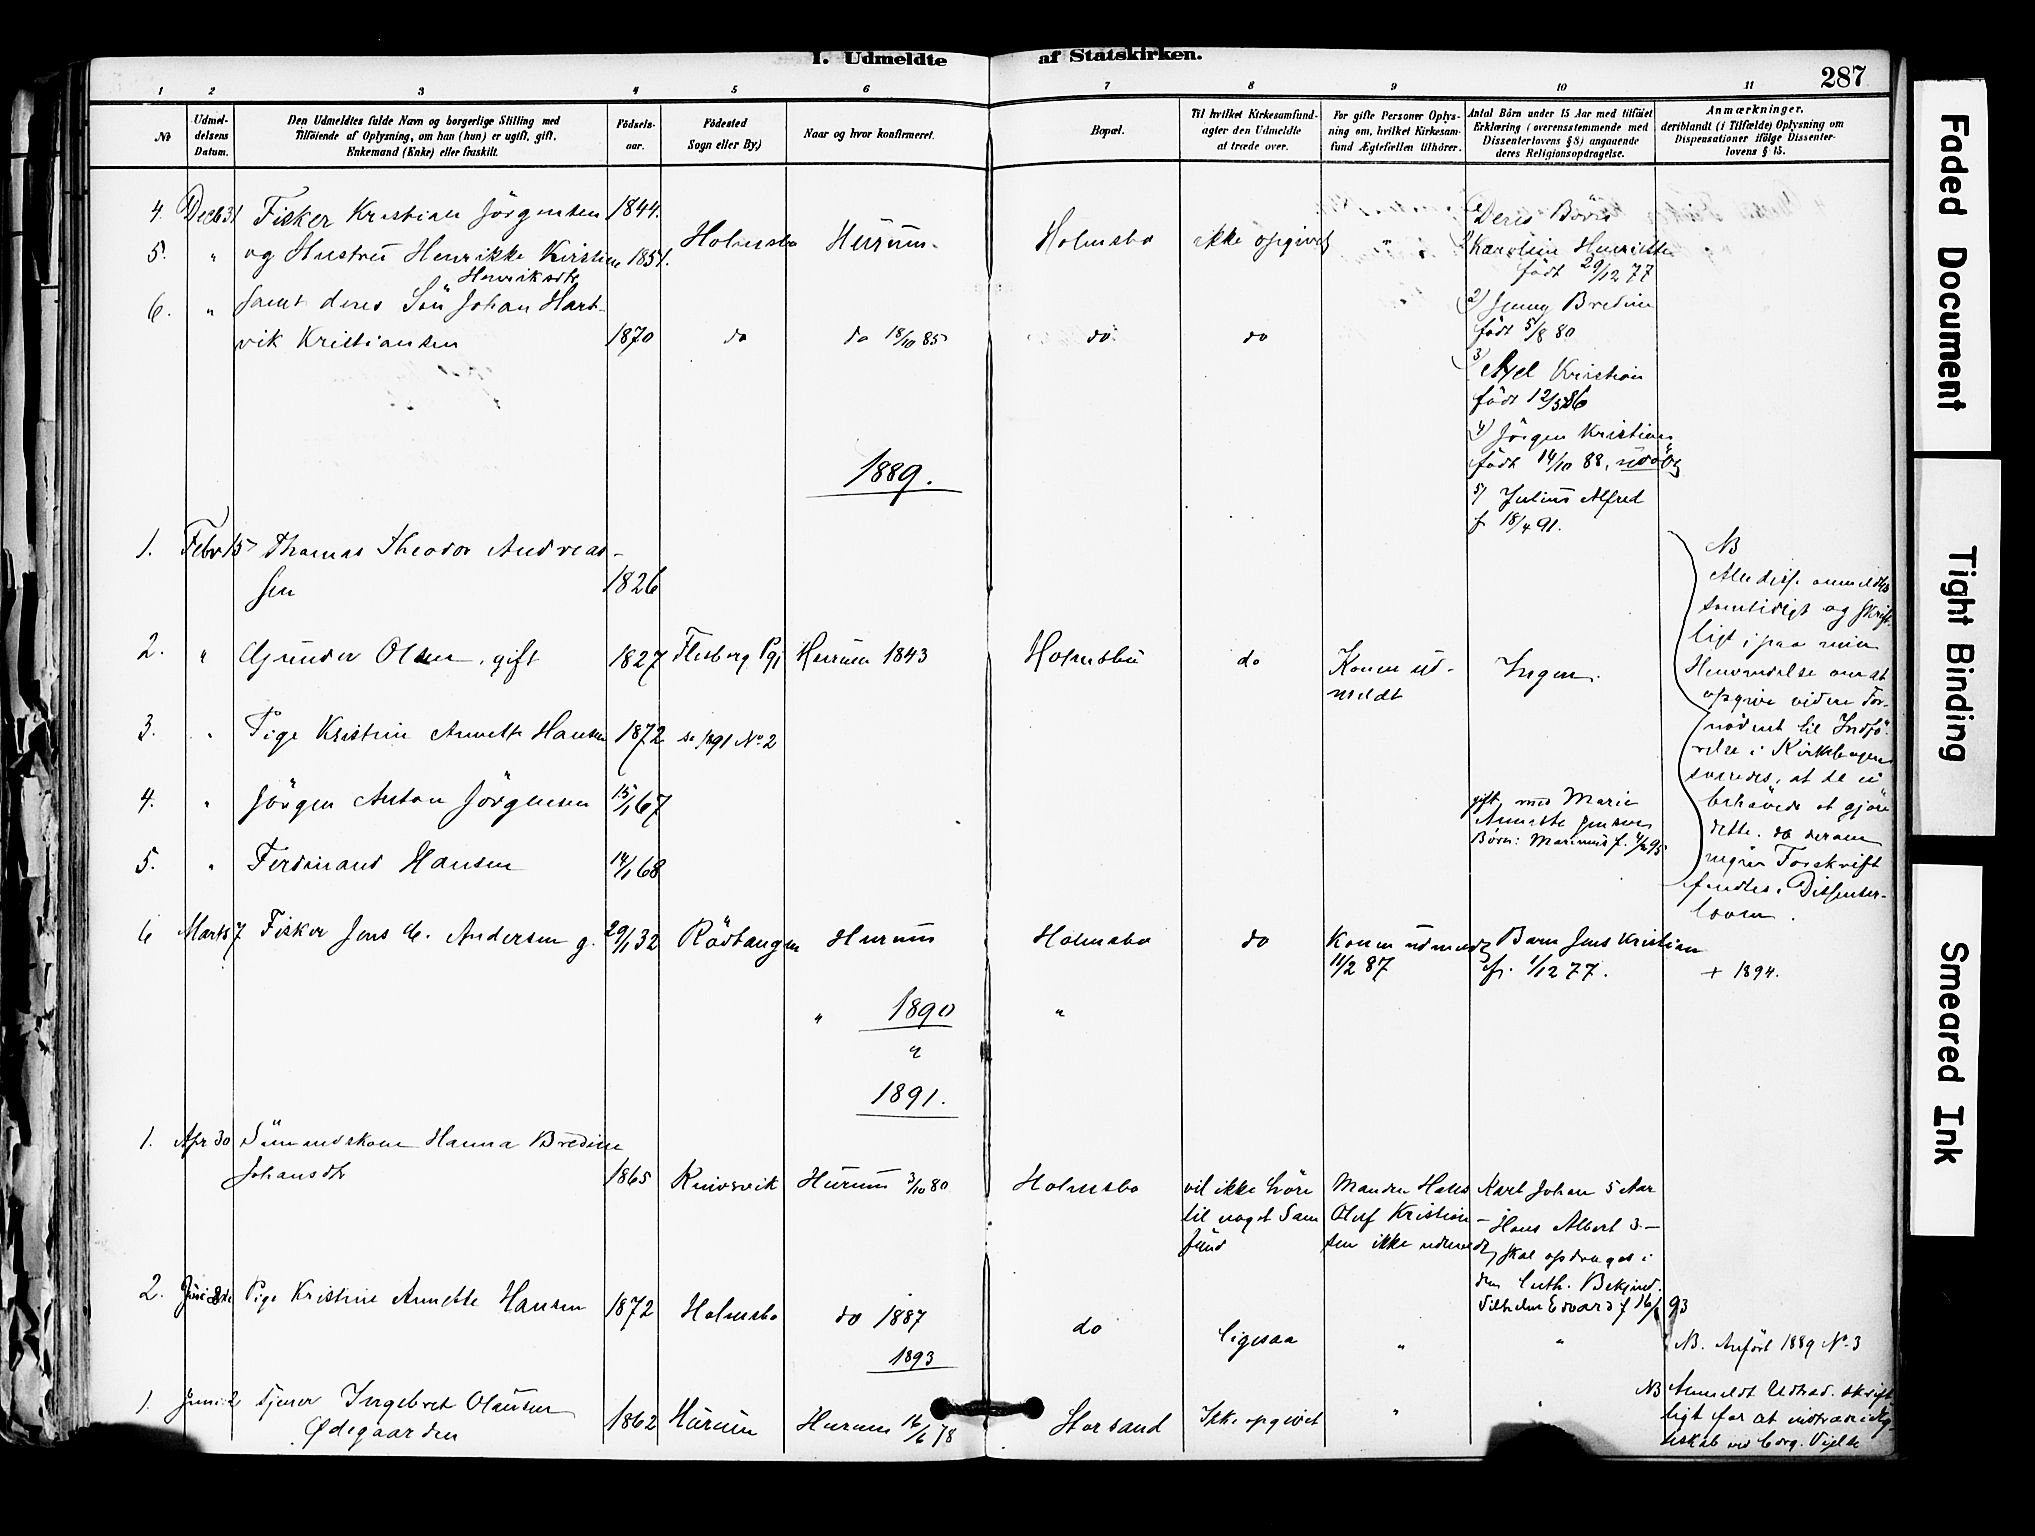 I. Udmeldte af Statskirken.
287
1 2 3 4 5 6 7 8 9 10 11
No
Udmeldelsens Datum.
Den Udmeldtes fulde Navn og borgerlige Stilling med
Tilföiende af Oplysning, om han (hun) er ugift, gift,
Enkemand (Enke) eller fraskilt.
Födselsaar.
Födested
Sogn eller By.)
Naar og hvor konfirmeret.
Bopæl.
Til hvilket Kirkesamfund-
agter den Udmeldte
at træde over.
For gifte Personer Oplys-
ning om, hvilket Kirkesam-
fund Ægtefællen tilhörer.
Antal Börn under 15 Aar med tilföiet
Erklæring (overensstemmende med
Dissenterlovens § 8) angaaende
deres Religionsopdragelse.
Anmærkninger,
deriblandt (i Tilfælde) Oplysning om
Dispensationer ifölge Dissenter-
lovens § 15.
4. Decb 31 Fisker Kristian Jörgensen 1844.
5. " og Hustru Henrikke Kirstine 1851. Holmsbo Hurum. Holmsbo ikke opgivet "
Henriksdtr
6. " samt deres Sön Johan Hart-
vik Kristiansen 1870 do do 18/10 85 do do
Deres Börn
1) Karoline Henriette
födt 29/12 77
2) Jenny Bredine
födt 5/8 80
3) Axel Kristian
födt 12/5 86
4) Jörgen Kristian
födt 14/10 88, udöbt
5) Julius Alfred
f 18/4 91.
1889.
1. Febr 15 Thomas Theodor Andreas-
sen 1826
2. " Gunder Olsen, gift 1827 Flesberg Pgj Hurum 1843 Holmsbu do Konen ud-
meldt Ingen.
3. " Pige Kristine Annette Hansen 1872 se 1891 No 2
4. " Jörgen Anton Jörgensen 15/1 67 gift med Marie
Annette Jensen
Börn: Marinus f.
5. " Ferdinand Hansen 14/1 68
NB
Alle disse anmeldtes
samtidigt og skrift-
ligt; paa min
Henvendelse om at
opgive videre For-
nödent til Indfö-
relse i Kirkebogen
svaredes, at de ei
behövede at gjöre
dette, da derom
ingen Forskrift
fandtes i Dissenter-
loven.
6 Marts 7 Fisker Jens C. Andersen g. 29/1 32 Rödtangen Hurum Holmsbo do Konen udmeldt
11/2 87 Barn Jens Kristian
f. 1/12 77. + 1894.
" 1890 "
"
1891.
1. Apr 30 Sömandskone Hanna Bredine
Johansdtr 1865 Knivsvik Hurum 3/10 80 Holmsbo vil ikke höre
til noget Sam
fund
Manden Hans
Oluf Kristian-
sen ikke udmeldt
Karl Johan 5 Aar
Hans Albert 3 —
skal opdrages i
den Luth. Bekjend.
Vilhelm Edvard f 93
2. Juni Pige Kristine Annette Hansen 1872 Holmsbo do 1887 do ligesaa " " NB. Anfört 1889 No 3
1893
1. Juni 2 Tjener Ingebret Olausen
Ødegaarden 1862 Hurum Hurum 16/6 78 Storsand Ikke opgivet " "
NB Anmeldt Udtrad. skrift
ligt for at indtræde i Æg-
teskab ved borg. Vielse
Faded Document
Tight Binding
Smeared Ink